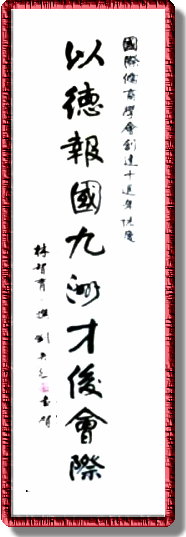 國際儒商學會創建十週年誌慶
以德報國九洲才俊會際
林智育 進 劉
書賀